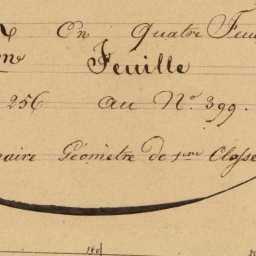 En Quatre Feu
Feuille
256 au N.º 399.
naire Géomètre de 1.ere Classe